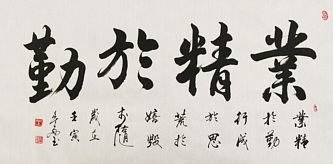 業精於勤
業精
於勤
行成
於思
荒於
嬉毁
於隨
歲在
壬寅